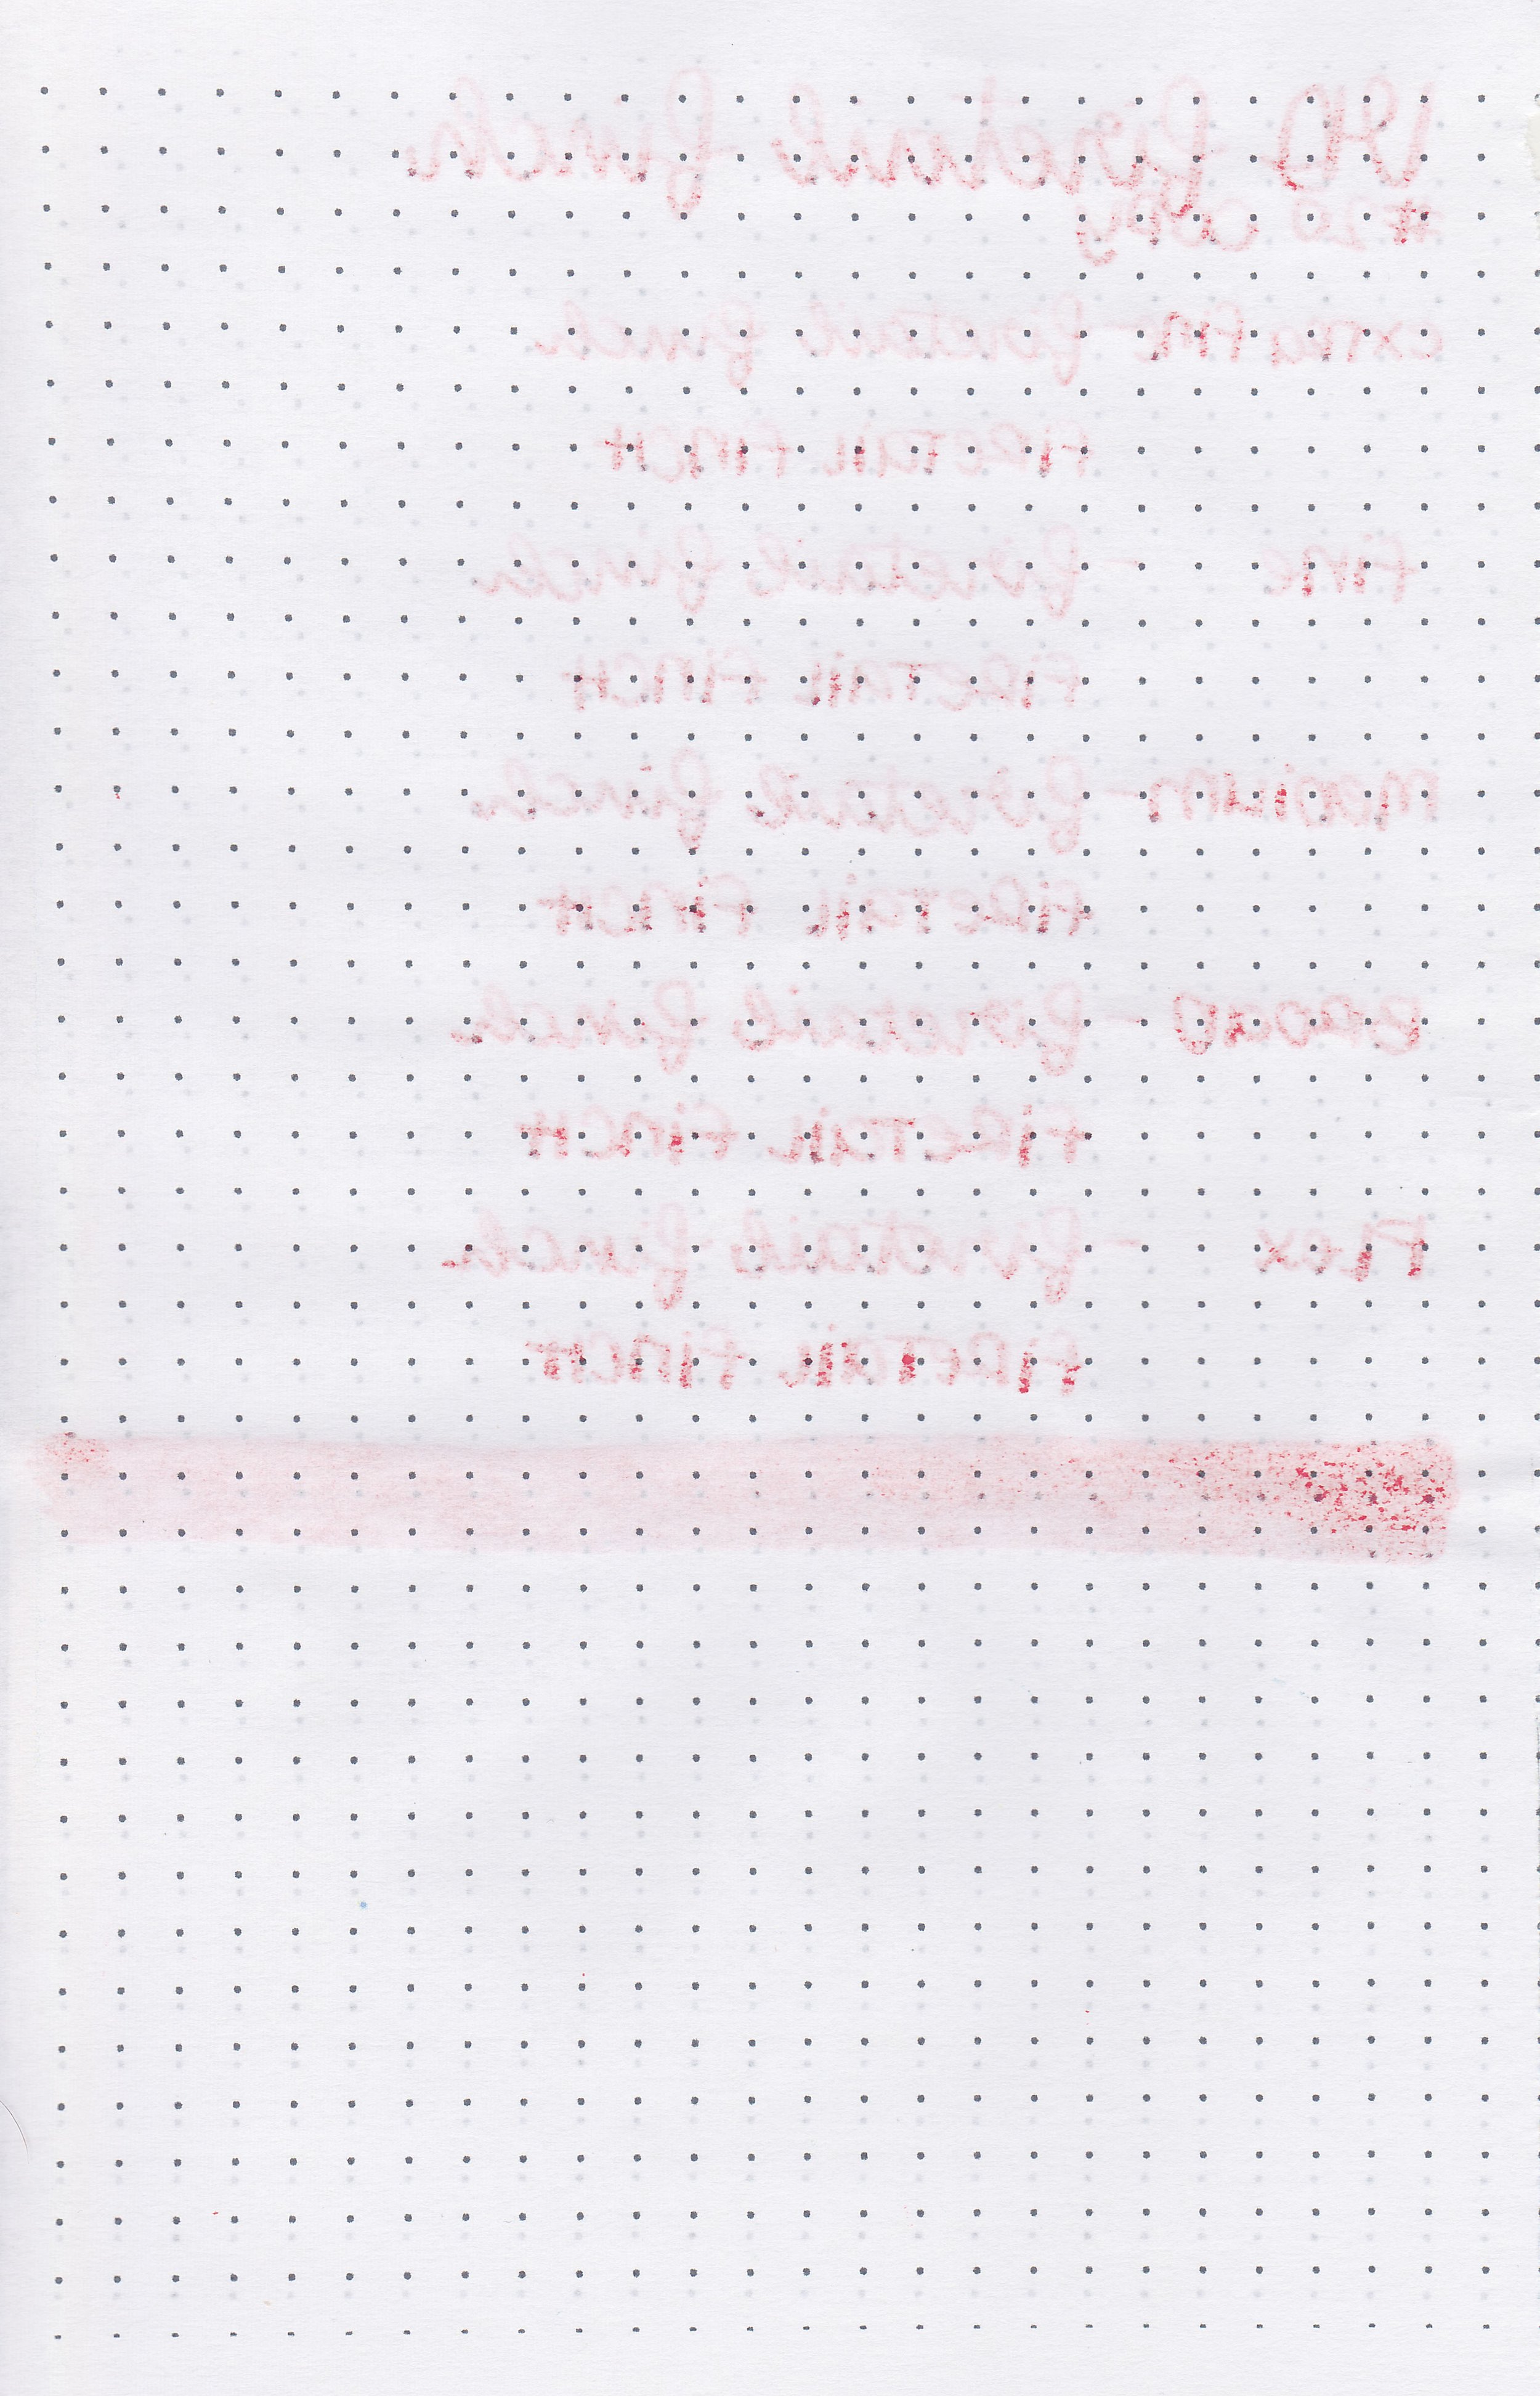 VD firetail finch
#20 copy
extra fine - firetail finch
FIRETAIL FINCH
Fine - firetail finch
FIRETAIL FINCH
Medium - firetail finch
FIRETAIL FINCH
BROAD - firetail finch
FIRETAIL FINCH
Flex - firetail finch
FIRETAIL FINCH